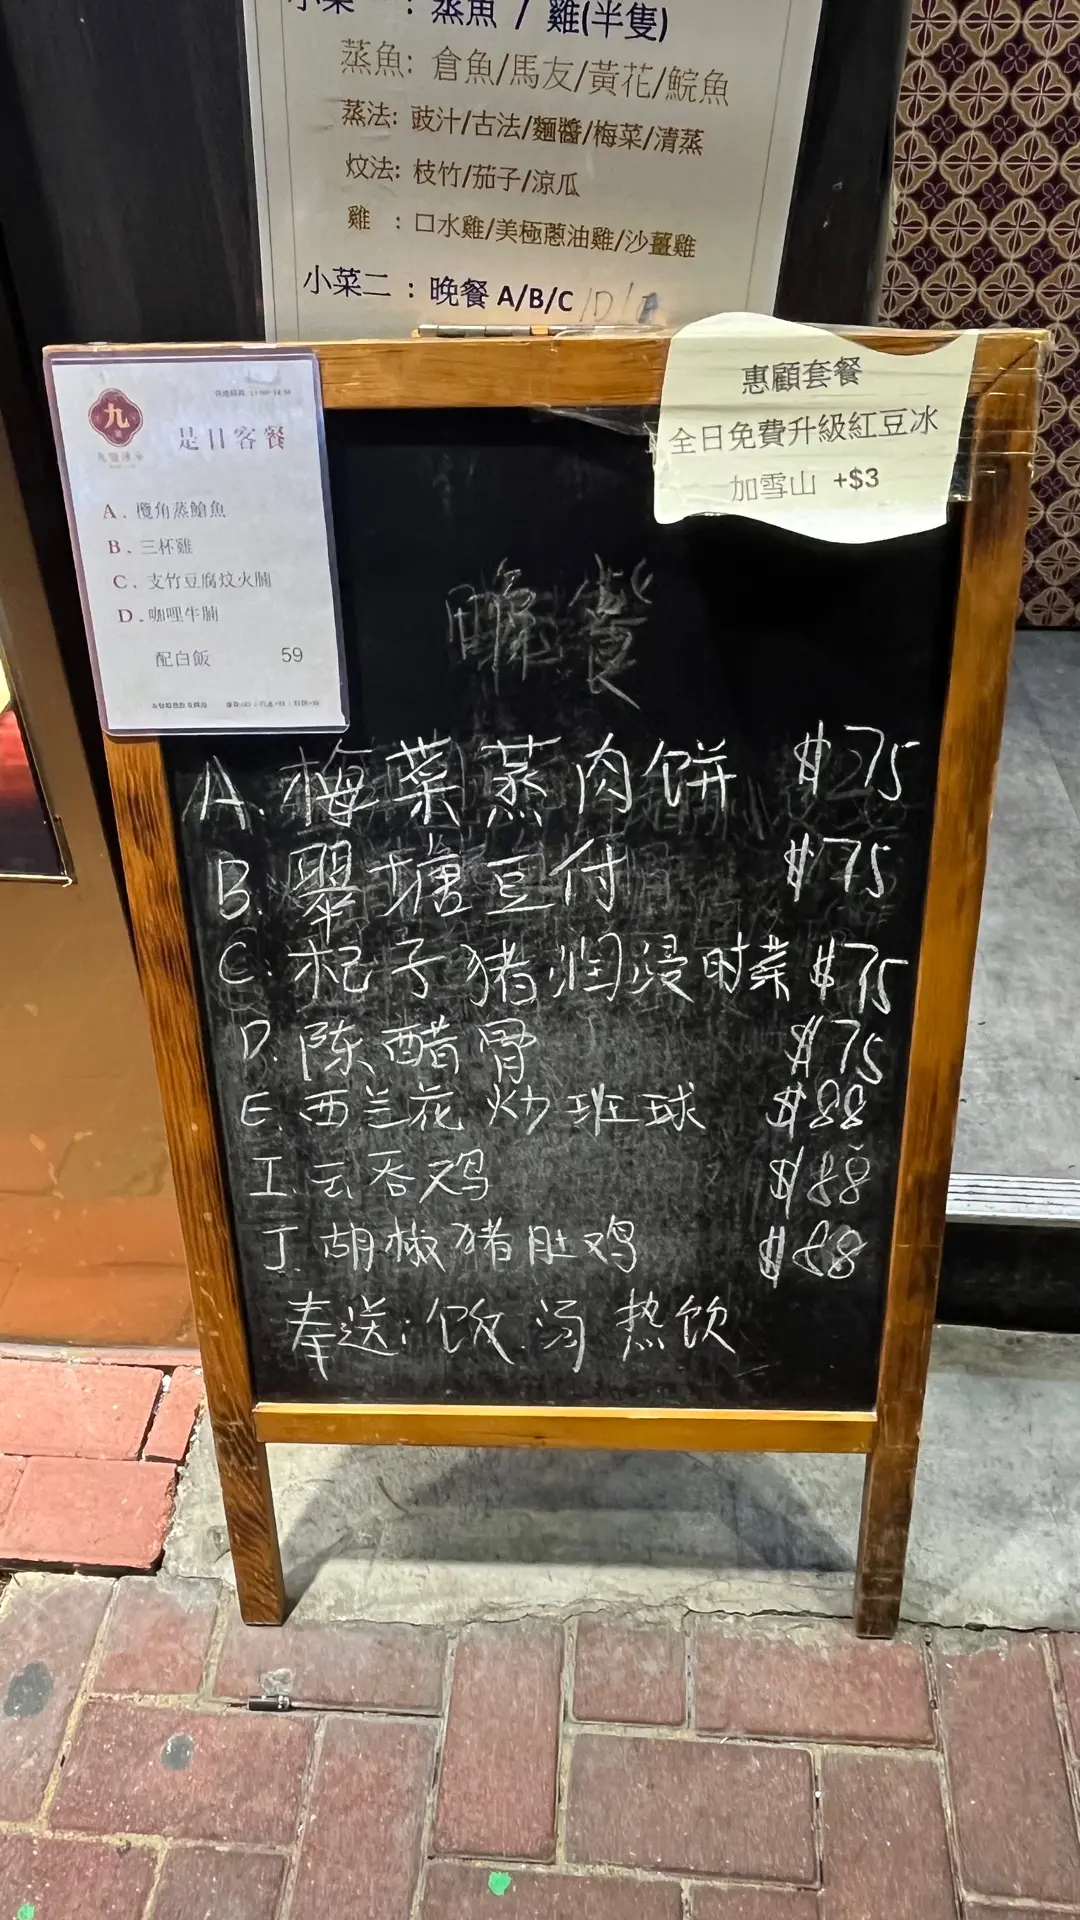 小菜一 : 蒸魚 / 雞(半隻)
蒸魚: 倉魚/馬友/黃花/鯇魚
蒸法: 豉汁/古法/麵醬/梅菜/清蒸
炆法: 枝竹/茄子/涼瓜
雞 : 口水雞/美極蔥油雞/沙薑雞
小菜二 : 晚餐 A/B/C/D/E
九
是日客餐
A . 欖角蒸鯧魚
B . 三杯雞
C . 支竹豆腐炆火腩
D . 咖哩牛腩
配白飯 59
惠顧套餐
全日免費升級紅豆冰
加雪山 +$3
晚餐
A. 梅菜蒸肉饼 $75
B. 翠塘豆付 $75
C. 杞子猪润浸时菜 $75
D. 陈醋骨 $75
E. 西兰花炒班球 $88
I. 云吞鸡 $88
J. 胡椒猪肚鸡 $88
奉送: 饭 汤 热饮